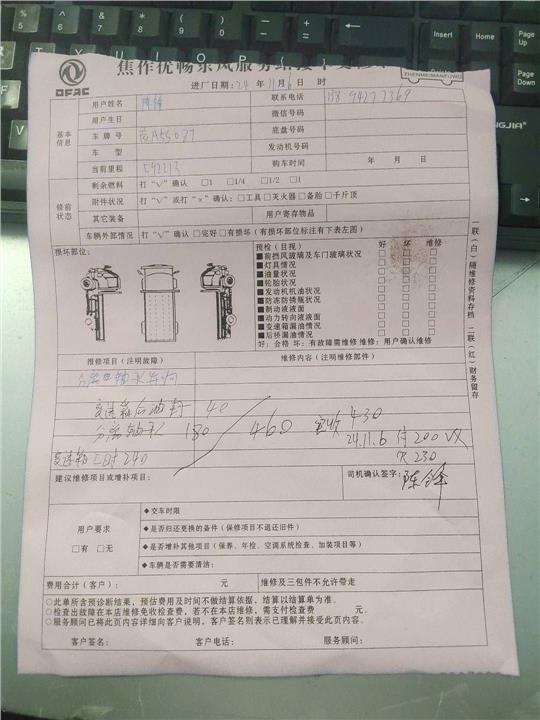 焦作优畅东风服务站接车
DFAC
ZHENMEIMANYUWU
进厂日期：24 年 11 月 6 日 时
用户姓名 陈锋 联系电话
用户生日 微信号码
基本信息
车牌号 底盘号
车型 发动机号码
当前里程 592213 购车时间 年 月 日
修前状态
剩余燃料 打“√”确认 □1 □1/4 □1/2 □1
附件状况 打“√”或打“×”确认：□工具□灭火器□备胎□千斤顶
其它装备 用户寄存物品
车辆外部情况 打“√”确认□完好□有损坏（有损坏部位标注有下表左图）
损坏部位：
预检（目视） 好 坏 维修
■前挡风玻璃及车门玻璃状况 □ □ □
■灯具情况 □ □ □
■油量状况 □ □ □
■轮胎状况 □ □ □
■发动机机油状况 □ □ □
■防冻防锈瓶状况 □ □ □
■制动液液面 □ □ □
■动力转向液液面 □ □ □
■变速箱漏油情况 □ □ □
■后桥漏油情况 □ □ □
好：合格 坏：有故障需维修 维修：用户确认维修
维修项目（注明故障） 维修内容（注明维修部件）
分离轴承异响
变速箱后油封 40
分离轴承 180
460 实收 430
24.11.6 付 200 VX
欠 230
变速箱工时 240
建议维修项目或增补项目： 司机确认签字：陈锋
用户要求
□有 □无
◆交车时限
◆是否归还更换的备件（保修项目不退还旧件）
◆是否增补其他项目（保养、年检、空调系统检查、加装项目等）
◆车辆是否需要清洁：
费用合计（客户）： 元 维修及三包件不允许带走
○此单所含预诊断结果，预估费用及时间不做结算依据，结算以结算单为准。
○检查出故障在本店维修免收检查费，若不在本店维修，需支付检查费 元。
○服务顾问已将此页内容详细向客户说明，客户签名则表示已理解并接受此页内容。
客户签名： 客户电话： 服务顾问：
一联（白）随维修资料存档 二联（红）财务留存
Home
PgUp
Page Up
End
PgDn
Page Down